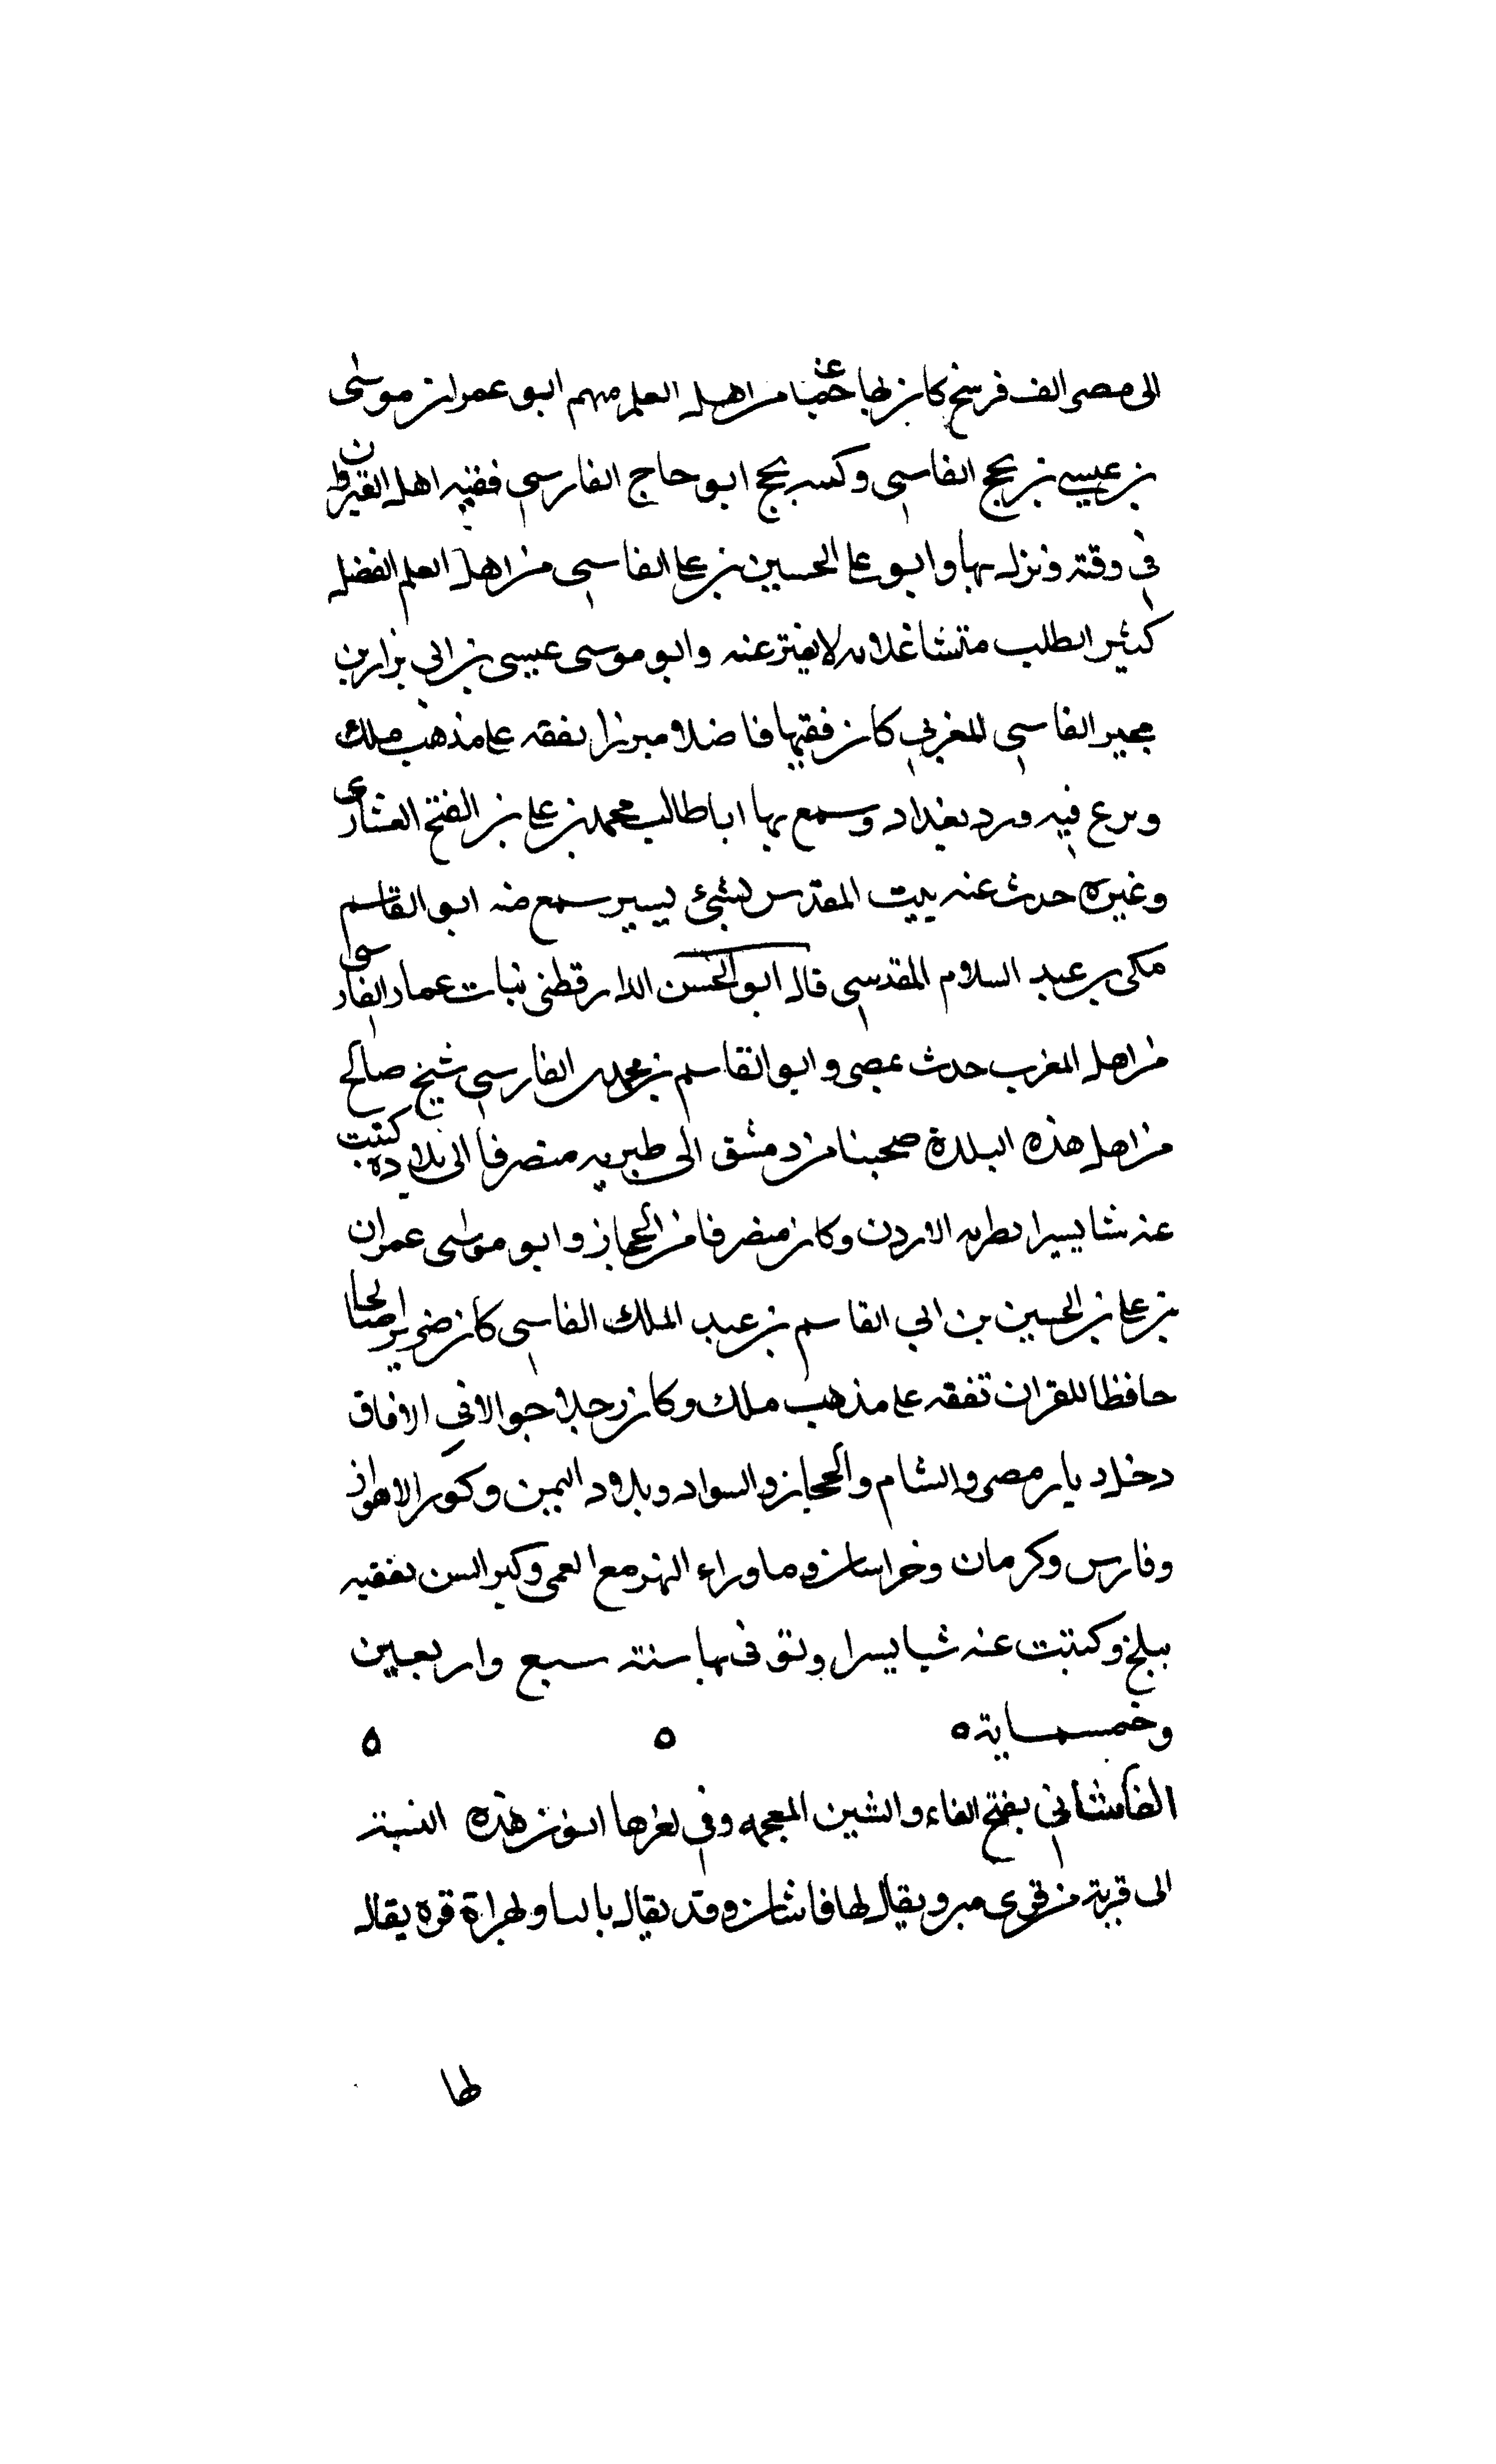 الى مصر الف فرسخ كان بها جماعة من اهل العلم منهم ابو عمران موسى
بن عيسى بن يحج الفاسى وكنيه يحج ابو حاج الفارسى فقيه اهل القيروان
فى وقته ونزل بها وابو على الحسين بن على الفاسى من اهل العلم الفضل
كثير الطلب متشاغلا به لا يفتر عنه وابو موسى عيسى بن ابى
الفاسى المغربى كان فقيها فاضلا مبرزا تفقه على مذهب ملك
وبرع فيه ورد بغداد وسمع بها ابا طالب محمد بن على بن الفتح العشارى
وغيره حدث عنه ببيت المقدس بشئ يسير سمع منه ابو القاسم
مكى بن عبد السلام المقدسى قال ابو الحسن الدارقطنى نبات عمار الفارسى
من اهل المغرب حدث بمصر وابو القاسم بن محمد بن الفارسى شيخ صالح
من اهل هذه البلدة صحبنا من دمشق الى طبريه منصرفا الى بلاده كتبت
عنه شيا يسيرا بطريه الاردن وكان منصرفا من الحجاز وابو موسى عمران
بن على بن الحسين بن ابى القاسم بن عبد الملك الفاسى كان ضريرا صالحا
حافظا للقران تفقه على مذهب ملك وكان رجلا جوالا فى الافاق
دخل ديار مصر والشام والحجاز والسواد وبلاد اليمين وكور الاهواز
وفارس وكرمان وخراسان وما وراء النهر مع العمى وكبر السن لقيته
ببلخ وكتبت عنه شيا يسرا وتوفى بها سنة سبع واربعين
وخمسماية ه ه ه
الفاشانى بفتح الفاء والشين المعجمه وفى اخرها النون هذه النسبة
الى قرية من قرى مرو يقال لها فاشان وقد يقال بالبا ولهراة قريه يقال
لها